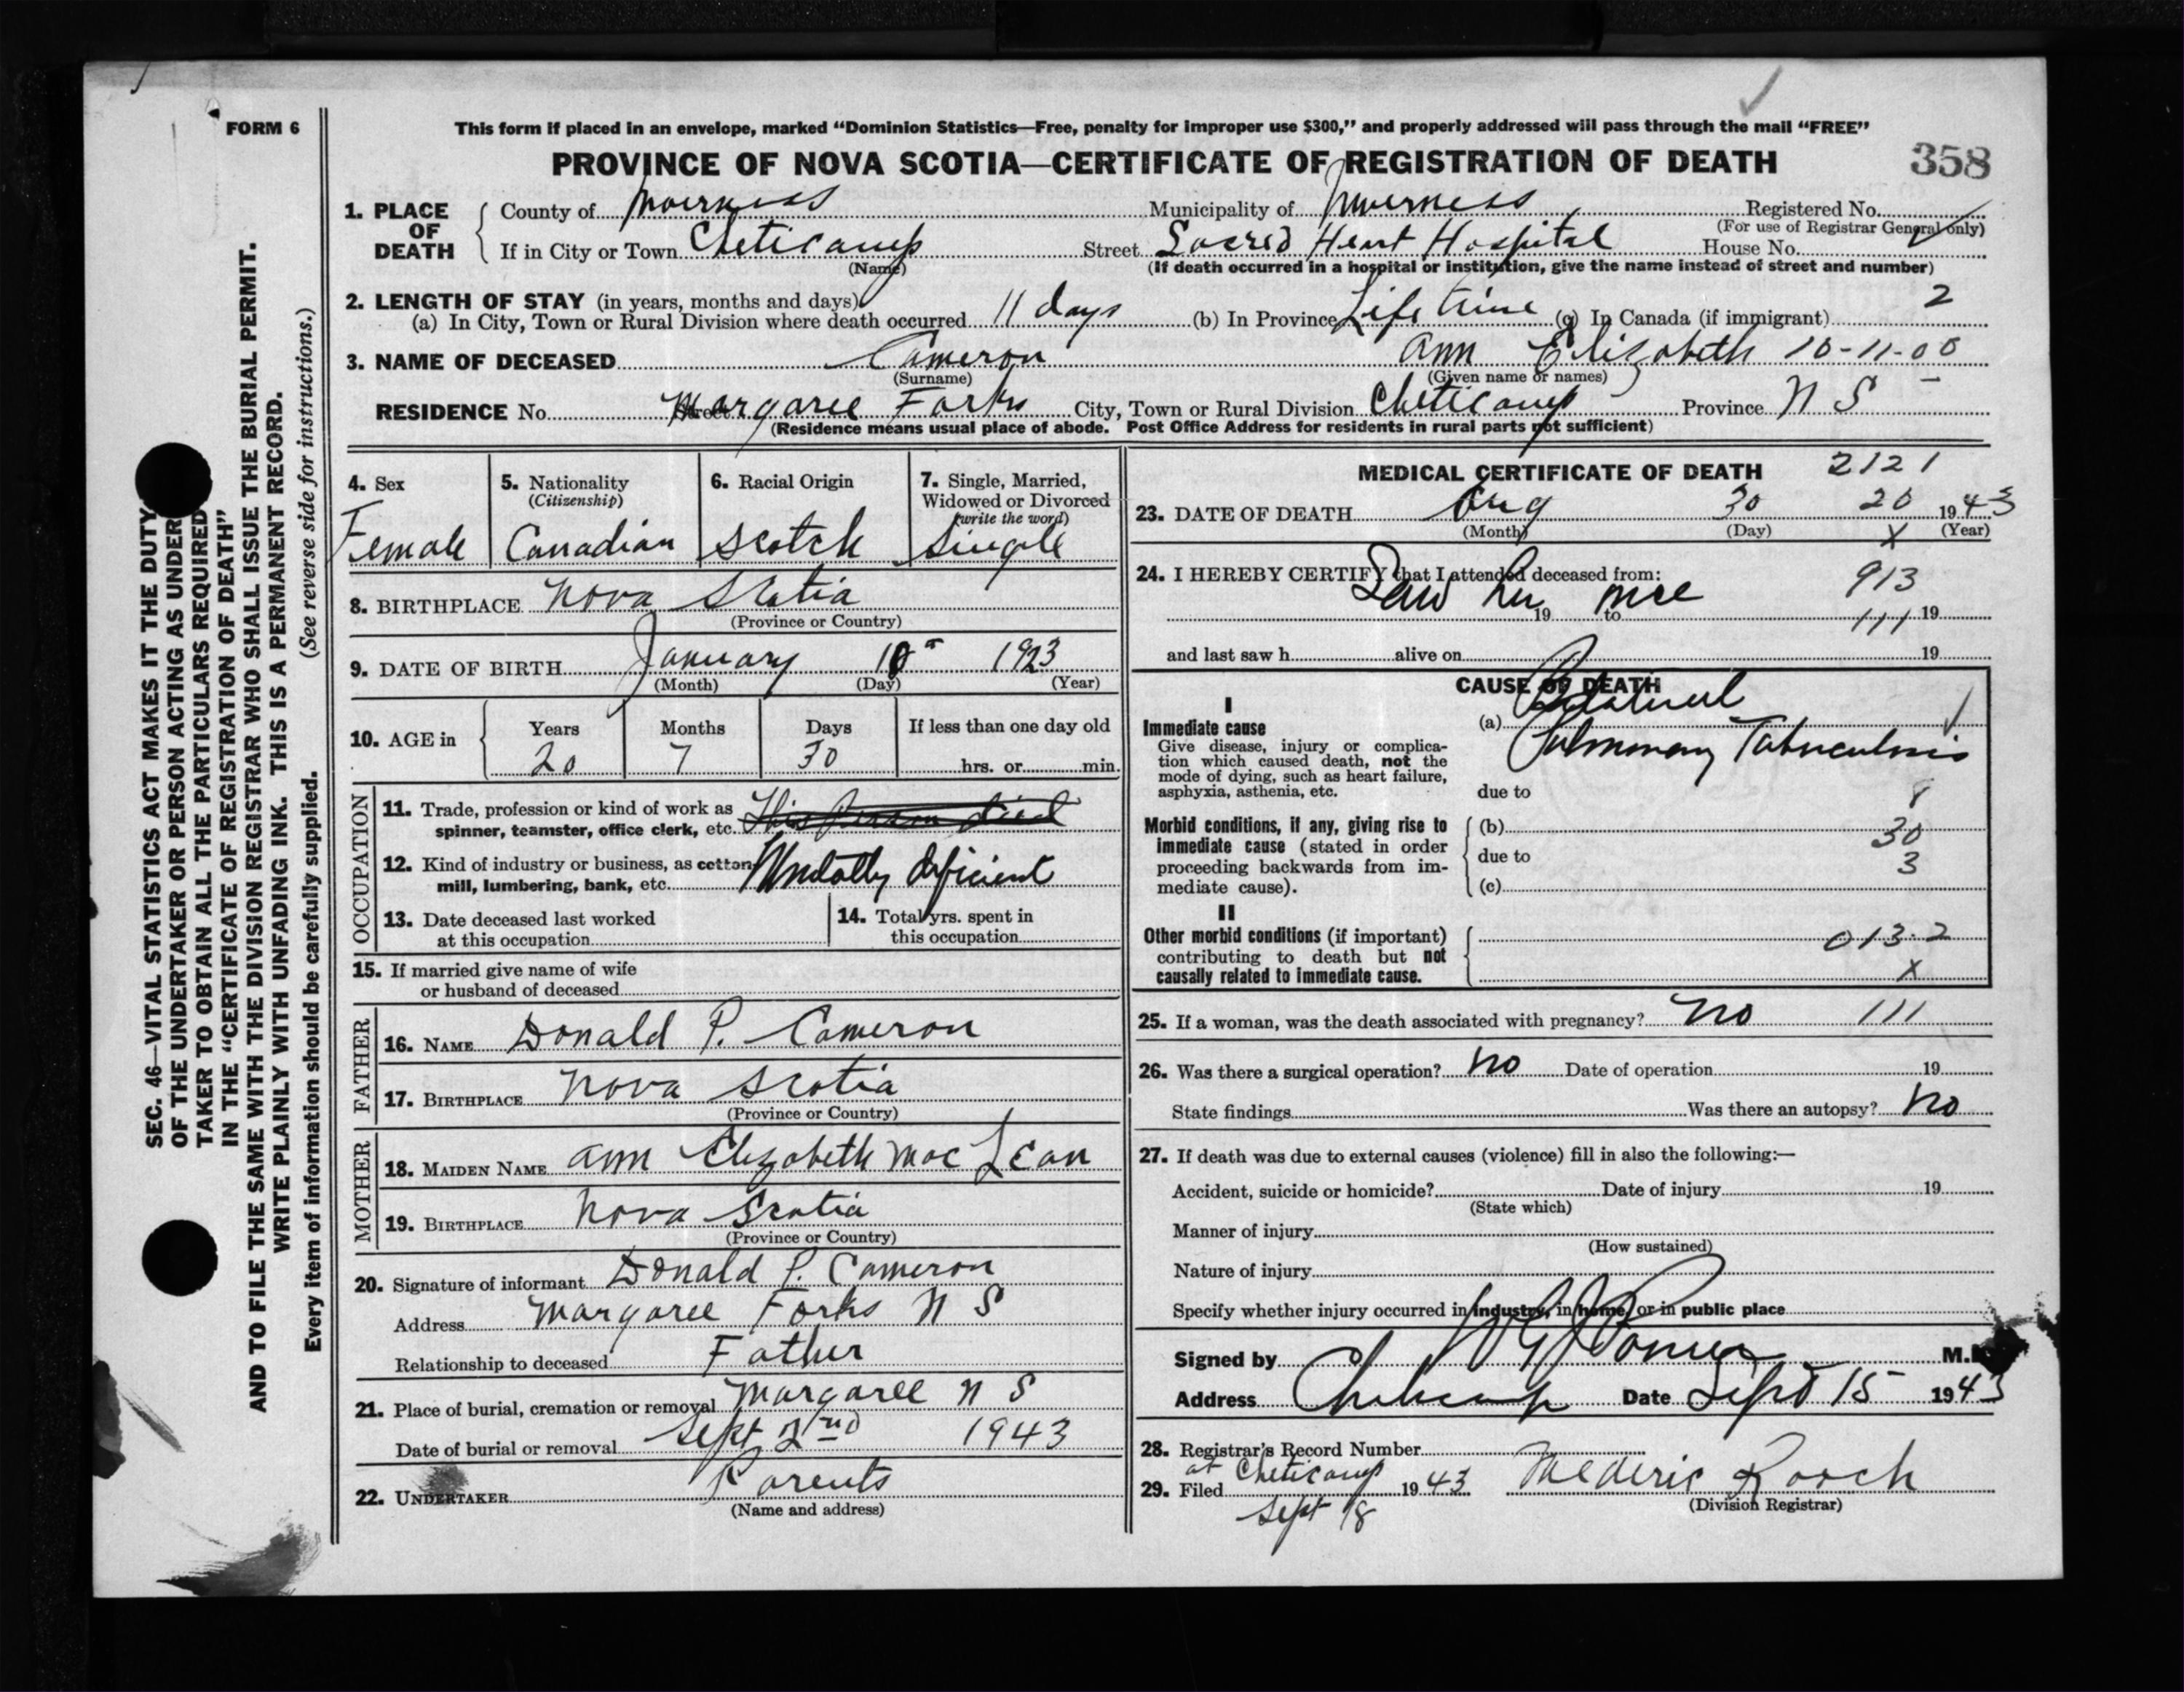 FORM 6
This form if placed in an envelope, marked “Dominion Statistics—Free, penalty for improper use $300,” and properly addressed will pass through the mail “FREE”
PROVINCE OF NOVA SCOTIA—CERTIFICATE OF REGISTRATION OF DEATH 358
1. PLACE OF DEATH County of Inverness Municipality of Inverness Registered No.
(For use of Registrar General only)
If in City or Town Cheticamp Street Sacred Heart Hospital House No.
(Name) (If death occurred in a hospital or institution, give the name instead of street and number)
2. LENGTH OF STAY (in years, months and days)
(a) In City, Town or Rural Division where death occurred 11 days (b) In Province Life time (c) In Canada (if immigrant) 2
3. NAME OF DECEASED Cameron Ann Elizabeth 10-11-00
(Surname) (Given name or names)
RESIDENCE No. Street Margaree Forks City, Town or Rural Division Cheticamp Province N S
(Residence means usual place of abode. Post Office Address for residents in rural parts not sufficient)
4. Sex
Female
5. Nationality
(Citizenship)
Canadian
6. Racial Origin
Scotch
7. Single, Married,
Widowed or Divorced
(write the word)
Single
8. BIRTHPLACE Nova Scotia
(Province or Country)
9. DATE OF BIRTH January 10 1923
(Month) (Day) (Year)
10. AGE in Years Months Days If less than one day old
20 7 30 hrs. or min.
OCCUPATION
11. Trade, profession or kind of work as
spinner, teamster, office clerk, etc. This Person died
12. Kind of industry or business, as cotton
mill, lumbering, bank, etc. Mentally deficient
13. Date deceased last worked
at this occupation
14. Total yrs. spent in
this occupation
15. If married give name of wife
or husband of deceased
FATHER
16. NAME Donald P. Cameron
17. BIRTHPLACE Nova Scotia
(Province or Country)
MOTHER
18. MAIDEN NAME Ann Elizabeth Mac Lean
19. BIRTHPLACE Nova Scotia
(Province or Country)
20. Signature of informant Donald P. Cameron
Address Margaree Forks N S
Relationship to deceased Father
21. Place of burial, cremation or removal Margaree N S
Date of burial or removal Sept 2nd 1943
22. UNDERTAKER Parents
(Name and address)
MEDICAL CERTIFICATE OF DEATH 2121
23. DATE OF DEATH Aug 30 20 1943
(Month) (Day) X (Year)
24. I HEREBY CERTIFY that I attended deceased from: 913
Saw her once
19 to 111 19
and last saw h alive on 19
CAUSE OF DEATH
I
Immediate cause
Give disease, injury or complica-
tion which caused death, not the
mode of dying, such as heart failure,
asphyxia, asthenia, etc.
(a) Bilateral
Pulmonary Tuberculosis
due to 8
Morbid conditions, if any, giving rise to
immediate cause (stated in order
proceeding backwards from im-
mediate cause).
(b) 30
due to 3
(c)
II
Other morbid conditions (if important)
contributing to death but not
causally related to immediate cause.
013.2
X
25. If a woman, was the death associated with pregnancy? No 111
26. Was there a surgical operation? No Date of operation 19
State findings Was there an autopsy? No
27. If death was due to external causes (violence) fill in also the following:—
Accident, suicide or homicide? Date of injury 19
(State which)
Manner of injury
(How sustained)
Nature of injury
Specify whether injury occurred in industry, in home, or in public place
Signed by M.D.
Address Cheticamp Date Sept 15 1943
28. Registrar's Record Number
at Cheticamp
29. Filed Sept 18 1943 Mederic Roach
(Division Registrar)
SEC. 46—VITAL STATISTICS ACT MAKES IT THE DUTY
OF THE UNDERTAKER OR PERSON ACTING AS UNDER
TAKER TO OBTAIN ALL THE PARTICULARS REQUIRED
IN THE “CERTIFICATE OF REGISTRATION OF DEATH”
AND TO FILE THE SAME WITH THE DIVISION REGISTRAR WHO SHALL ISSUE THE BURIAL PERMIT.
WRITE PLAINLY WITH UNFADING INK. THIS IS A PERMANENT RECORD.
Every item of information should be carefully supplied. (See reverse side for instructions.)